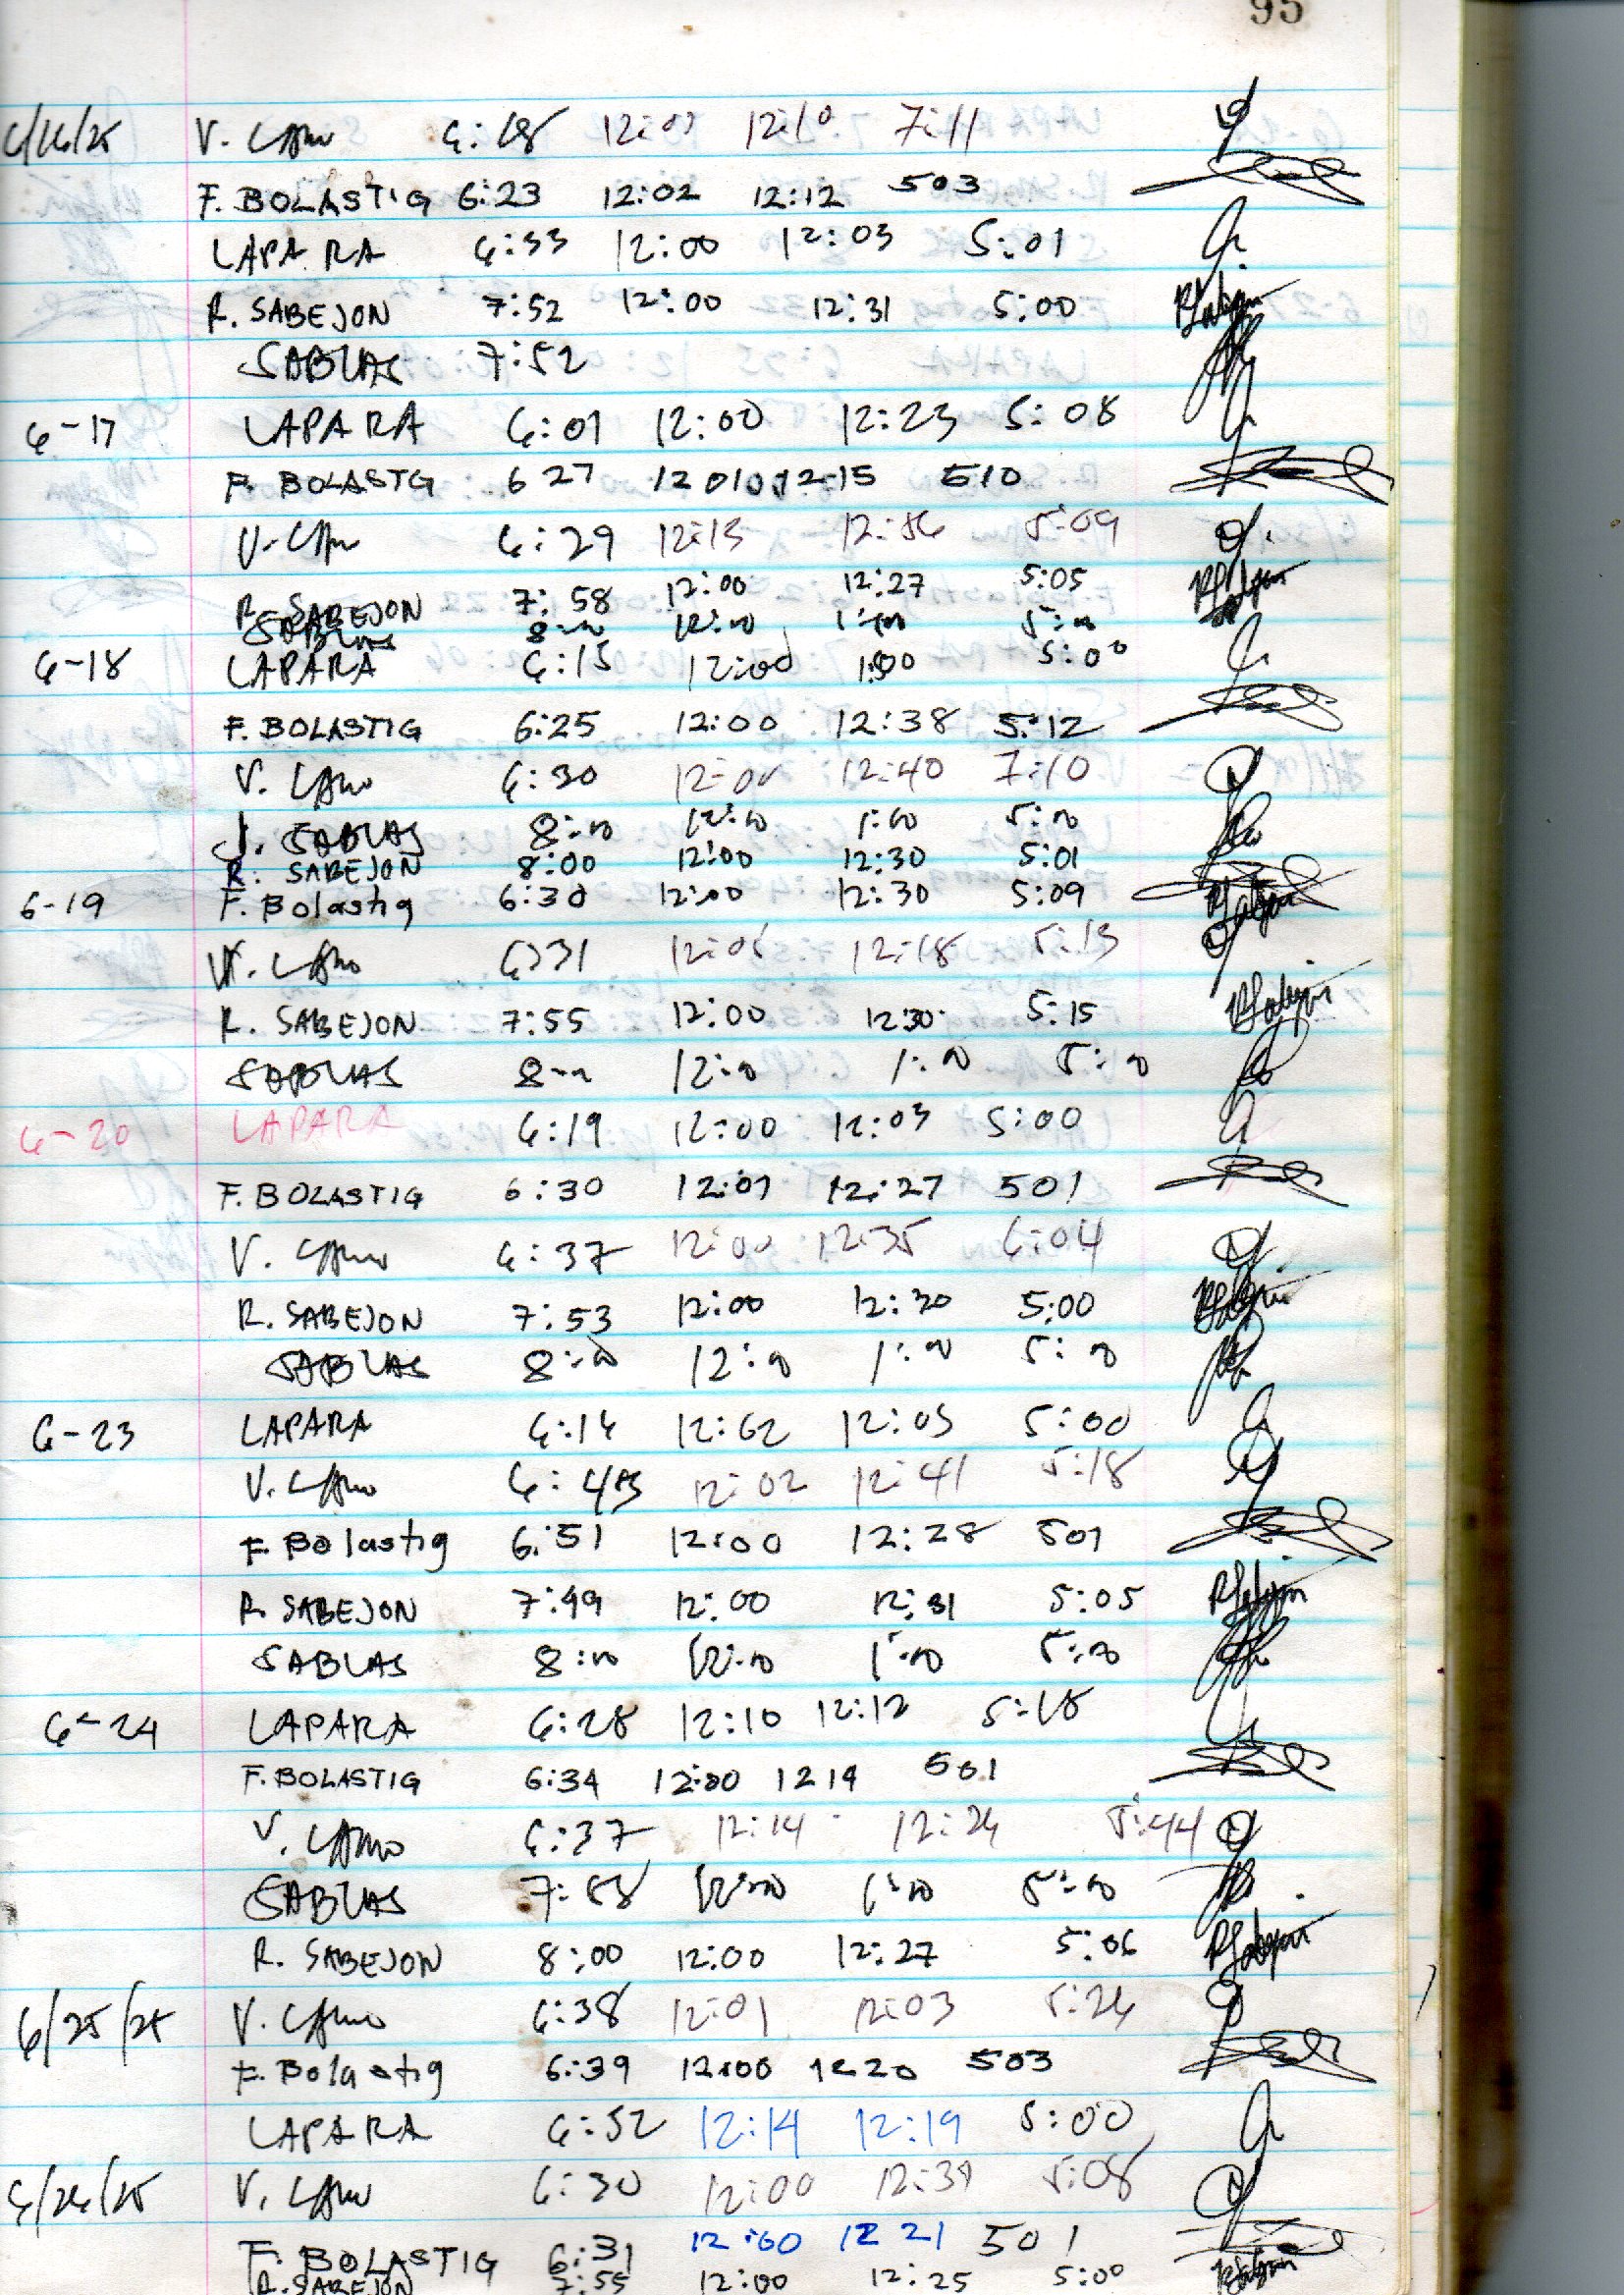 95
6/16/25 V. LAmo 6:18 12:07 12:10 7:11
F. BOLASTIG 6:23 12:02 12:12 503
LAPARA 6:33 12:00 12:03 5:01
R. SABEJON 7:52 12:00 12:31 5:00
SABLAS 7:52
6-17 LAPARA 6:01 12:00 12:23 5:08
F. BOLASTG 6 27 12 01 12-15 510
V. LAm 6:29 12:13 12:56 5:09
R. SABEJON 7:58 12:00 12:27 5:05
SABLAS 8:00 12:00 1:00 5:00
6-18 LAPARA 6:15 12:00 1:00 5:00
F. BOLASTIG 6:25 12:00 12:38 5:12
V. LAmo 6:30 12:00 12:40 7:10
J. SABLAS 8:00 12:00 1:00 5:00
R. SABEJON 8:00 12:00 12:30 5:01
6-19 F. Bolastig 6:30 12:00 12:30 5:09
V. LAmo 6:31 12:12:18 5:13
R. SABEJON 7:55 12:00 12:30 5:15
SABLAS 8:00 12:00 1:00 5:00
6-20 LAPARA 6:19 12:00 12:03 5:00
F. BOLASTIG 6:30 12:01 12:27 501
V. LAmo 6:37 12:00 12:35 6:04
R. SABEJON 7:53 12:00 12:30 5:00
SABLAS 8:00 12:00 1:00 5:00
6-23 LAPARA 6:14 12:02 12:05 5:00
V. LAmo 6:43 12:02 12:41 5:18
F. Bolastig 6:51 12:00 12:28 501
R. SABEJON 7:49 12:00 12:31 5:05
SABLAS 8:00 12:00 1:00 5:00
6-24 LAPARA 6:28 12:10 12:12 5:18
F. BOLASTIG 6:34 12:00 12 14 501
V. LAmo 6:37 12:14 12:26 5:44
SABLAS 7:58 12:00 1:00 5:00
R. SABEJON 8:00 12:00 12:27 5:06
6/25/25 V. LAmo 6:38 12:01 12:03 5:26
F. Bolastig 6:39 12:00 12 20 503
LAPARA 6:52 12:14 12:19 5:00
6/26/25 V. LAmo 6:30 12:00 12:39 5:08
F. BOLASTIG 6:31 12:00 12 21 501
R. SABEJON 7:55 12:00 12:25 5:00